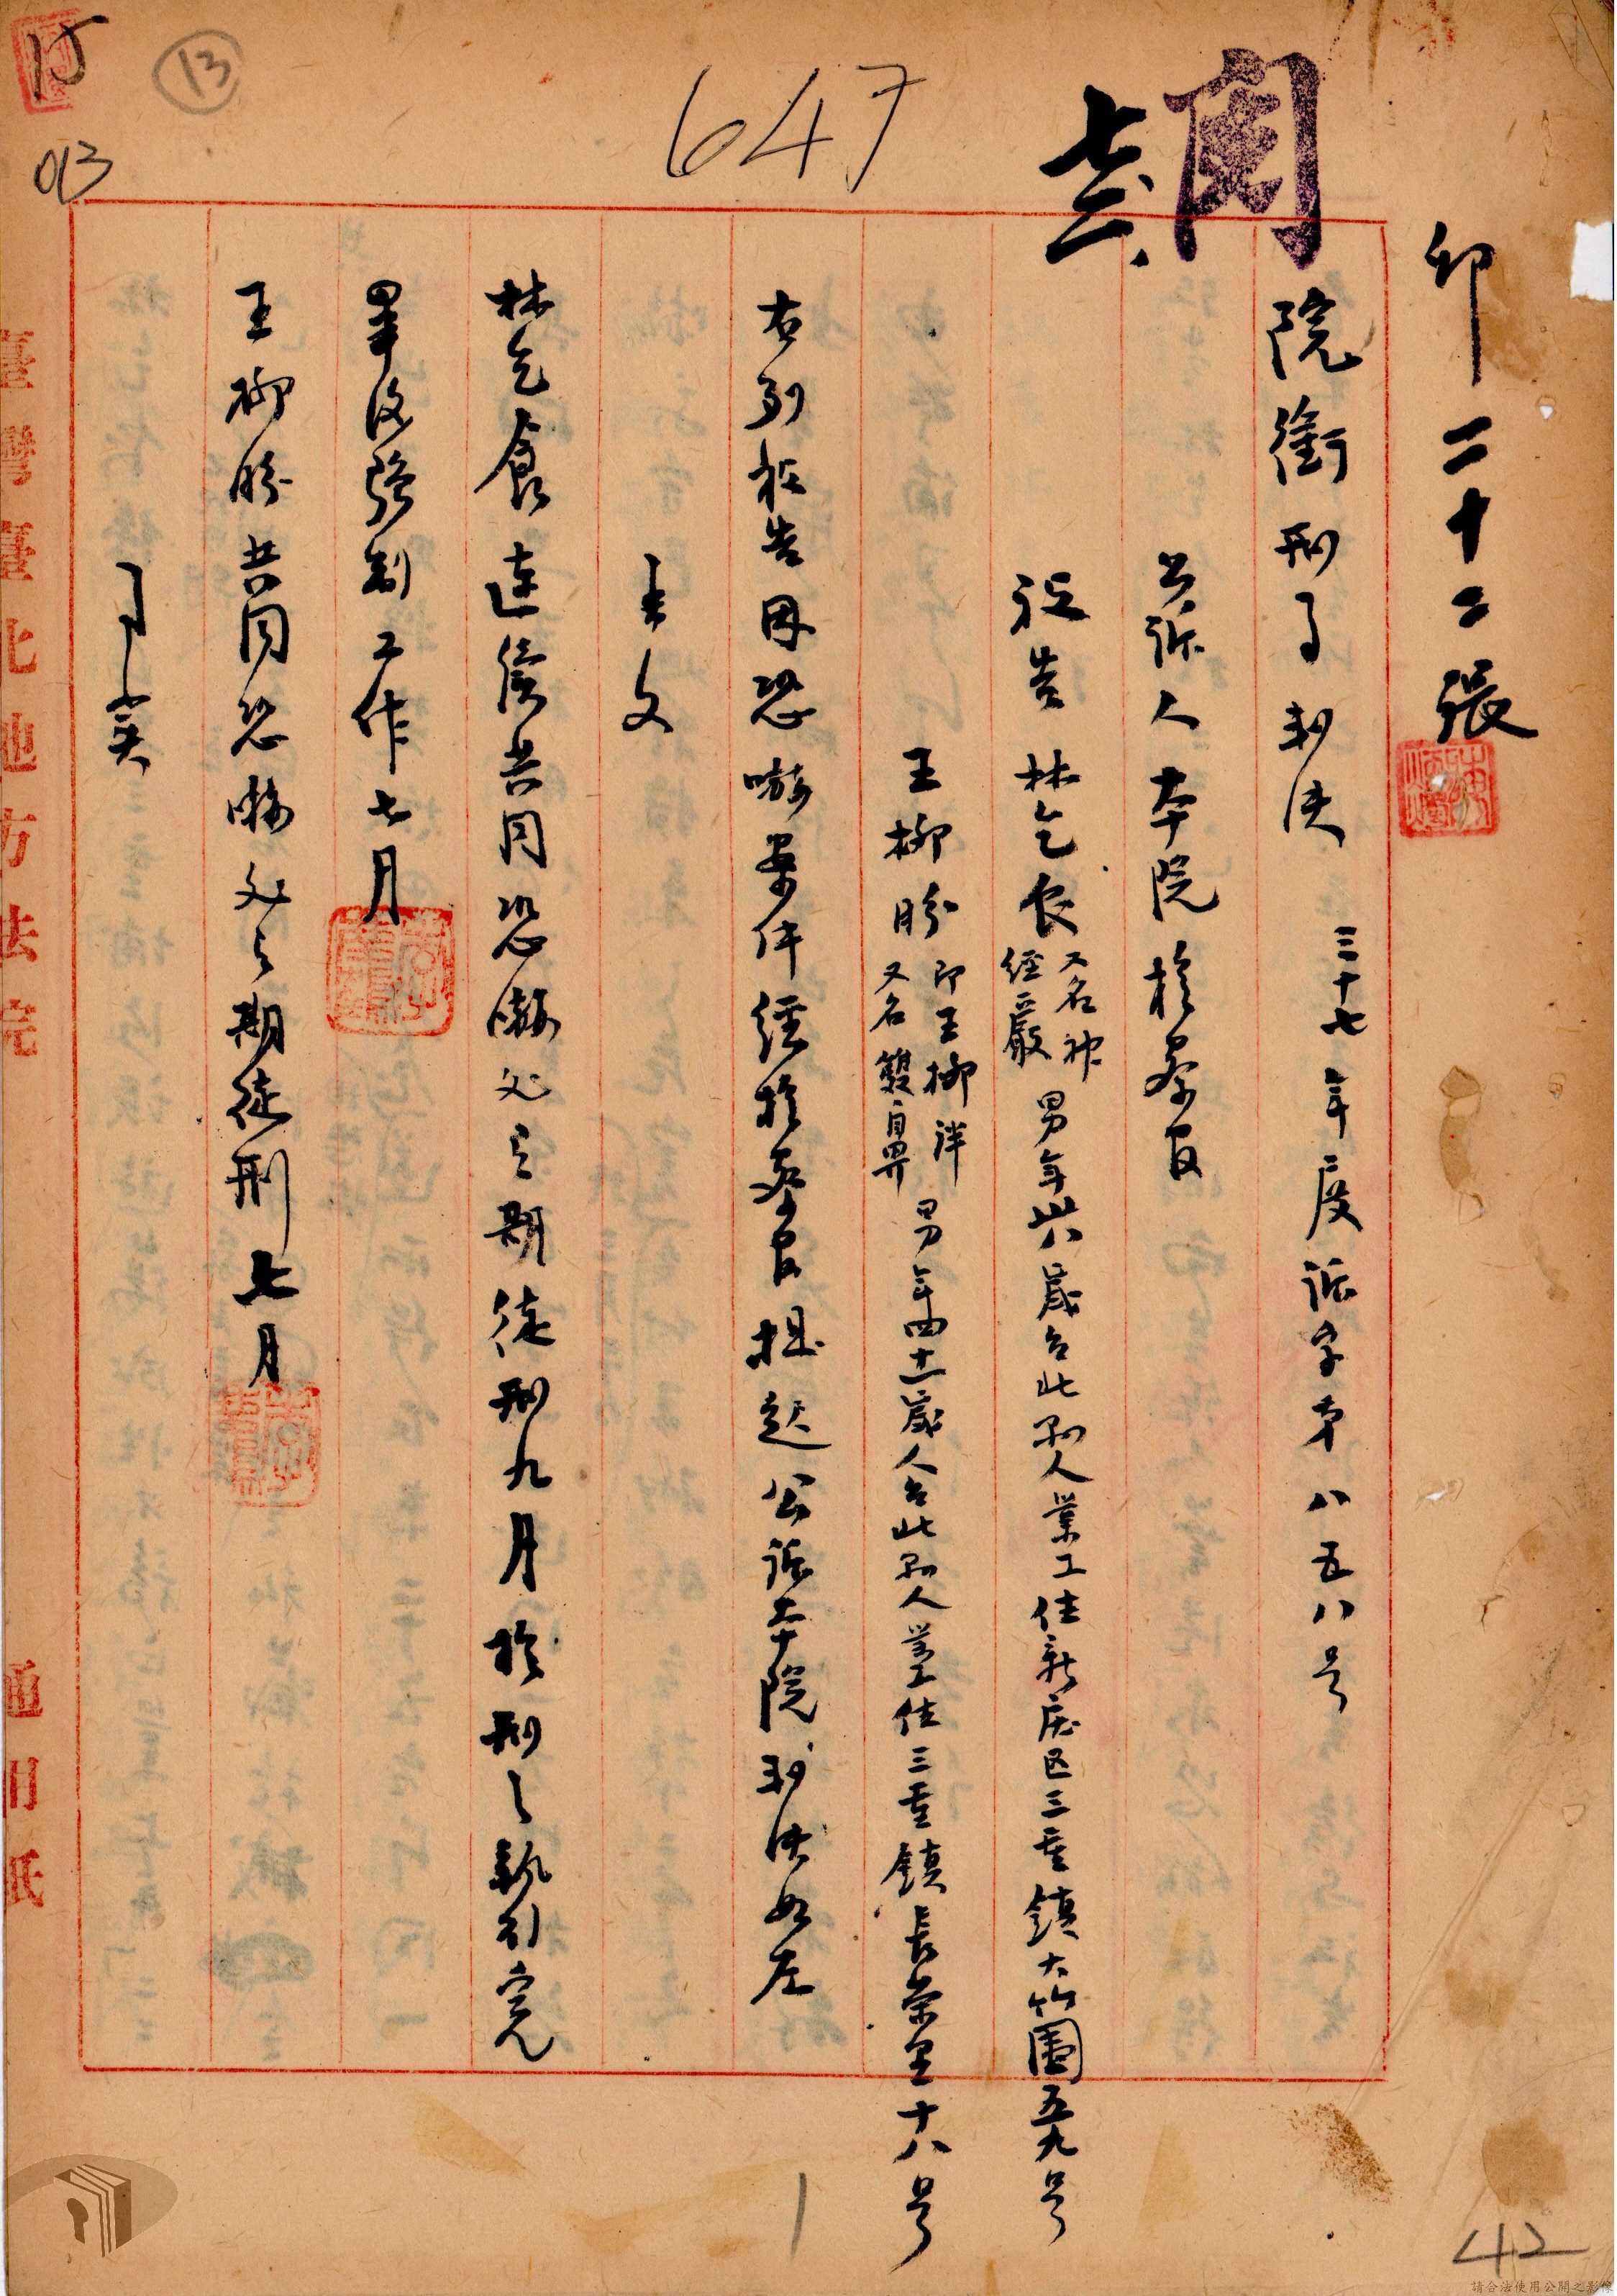 15
13
013
647
印二十二張
院銜刑事判決　三十七年度訴字第八五八号
公訴人本院檢察官
被告林乞食又名神經嚴男年卅八歲台北縣人業工住新庄区三重鎮大竹圍五九号
王柳盼即王柳洋又名鼻男年四十一歲人台北縣人業工住三重鎮長榮里十八号
右列被告因恐嚇案件經檢察官提起公訴本院判決如左
主文
林乞食連續共同恐嚇処有期徒刑九月於刑之執行完
畢後強制工作七月
王柳盼共同恐嚇処有期徒刑七月
事實
臺灣臺北地方法院
通用紙
42
請合法使用公開之影像